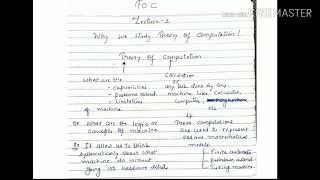 TOC
Lecture-1
Why we study Theory of Computation!
Theory of Computation
What are the
- Capabilities
- problems
- Limitation
of machine
Calculation
or
any task done by any
machine like Calculator,
Computer,
etc
or What are the logic or
concepts of machine
These computations
are used to represent
various mathematical
models
It allows us to think
systematically about what
machine do without
going into hardware details
- Finite automata
- pushdown automata
- Turing machine
Made with KINEMASTER